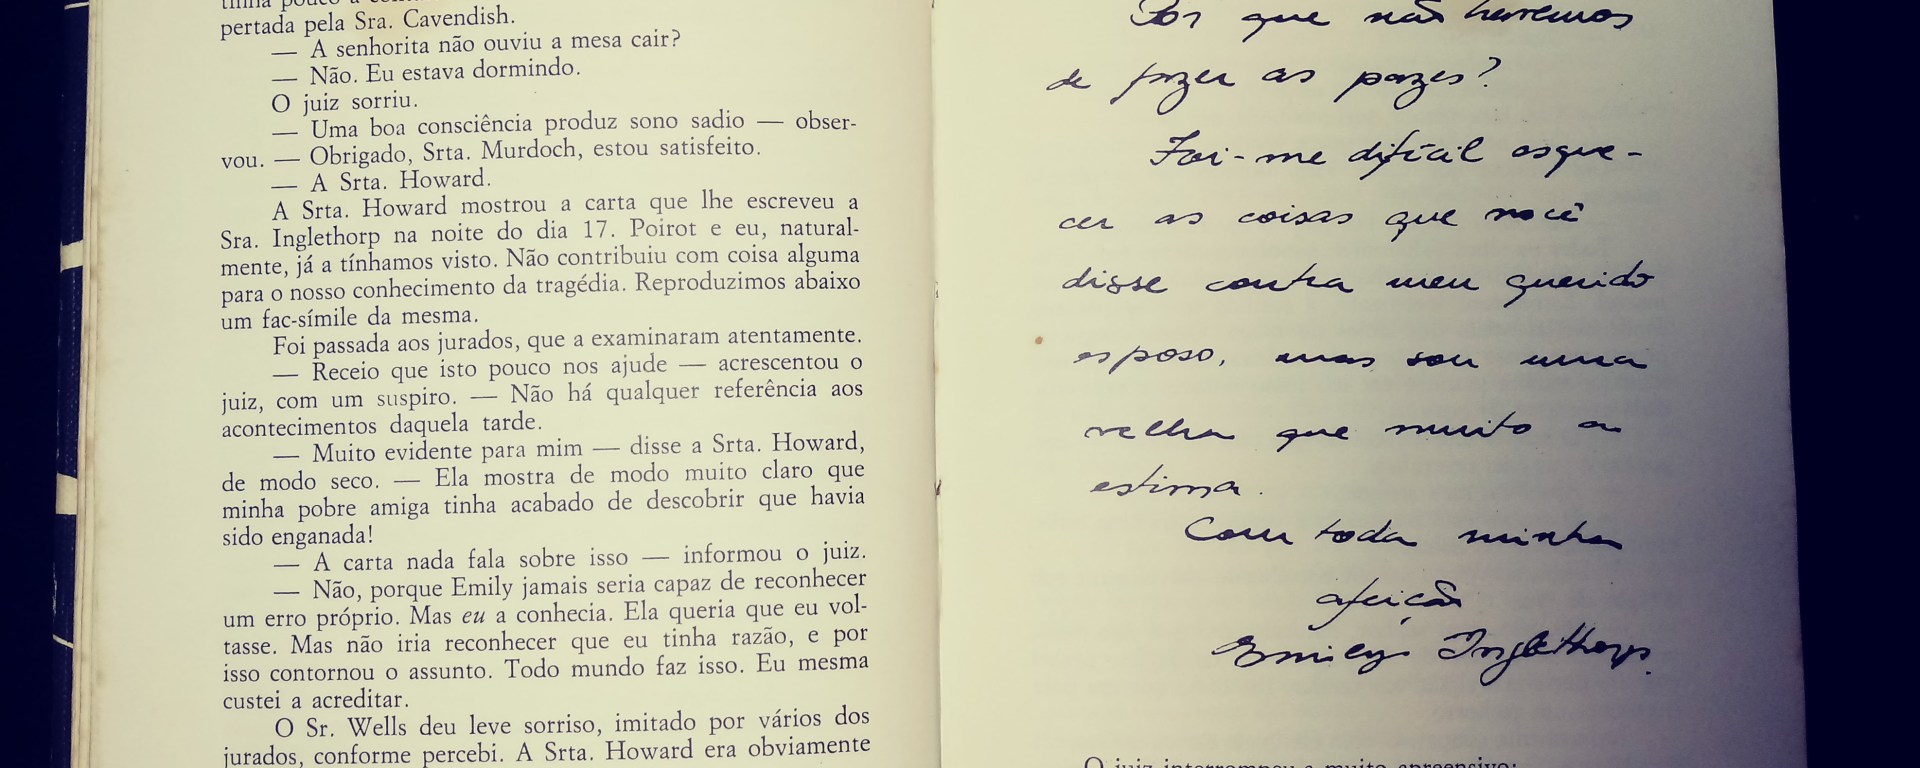 tinha pouco a
pertada pela Sra. Cavendish.
— A senhorita não ouviu a mesa cair?
— Não. Eu estava dormindo.
O juiz sorriu.
— Uma boa consciência produz sono sadio — obser-
vou. — Obrigado, Srta. Murdoch, estou satisfeito.
— A Srta. Howard.
A Srta. Howard mostrou a carta que lhe escreveu a
Sra. Inglethorp na noite do dia 17. Poirot e eu, natural-
mente, já a tínhamos visto. Não contribuiu com coisa alguma
para o nosso conhecimento da tragédia. Reproduzimos abaixo
um fac-símile da mesma.
Foi passada aos jurados, que a examinaram atentamente.
— Receio que isto pouco nos ajude — acrescentou o
juiz, com um suspiro. — Não há qualquer referência aos
acontecimentos daquela tarde.
— Muito evidente para mim — disse a Srta. Howard,
de modo seco. — Ela mostra de modo muito claro que
minha pobre amiga tinha acabado de descobrir que havia
sido enganada!
— A carta nada fala sobre isso — informou o juiz.
— Não, porque Emily jamais seria capaz de reconhecer
um erro próprio. Mas eu a conhecia. Ela queria que eu vol-
tasse. Mas não iria reconhecer que eu tinha razão, e por
isso contornou o assunto. Todo mundo faz isso. Eu mesma
custei a acreditar.
O Sr. Wells deu leve sorriso, imitado por vários dos
jurados, conforme percebi. A Srta. Howard era obviamente
Por que não haveremos
de fazer as pazes?
Foi-me difícil esque-
cer as coisas que você
disse contra meu querido
esposo, mas sou uma
velha que muito a
estima.
Com toda minha
afeição
Emily Inglethorp.
O juiz interrompeu a muito apreensivo: